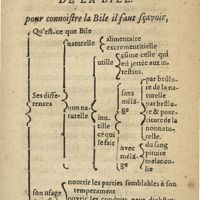 DE LA BILE.
pour connoistre la Bile il faut sçavoir,
Qu'est-ce que Bile
naturelle
alimentaire
excrementitielle
utille
cõme celle qui
est jettée aux in-
testins.
Ses diffe-
rences
non na-
turelle
inu-
tille
cē qui
se fait
sans
mélã-
ge
par brûlu-
re de la na-
turelle
par brûlu-
re & pour-
riture de la
nonnatu-
relle.
avec
mélã-
ge
du sang
pituite
melanco-
lie
son usage
nourrir les parties semblables à son
temperament